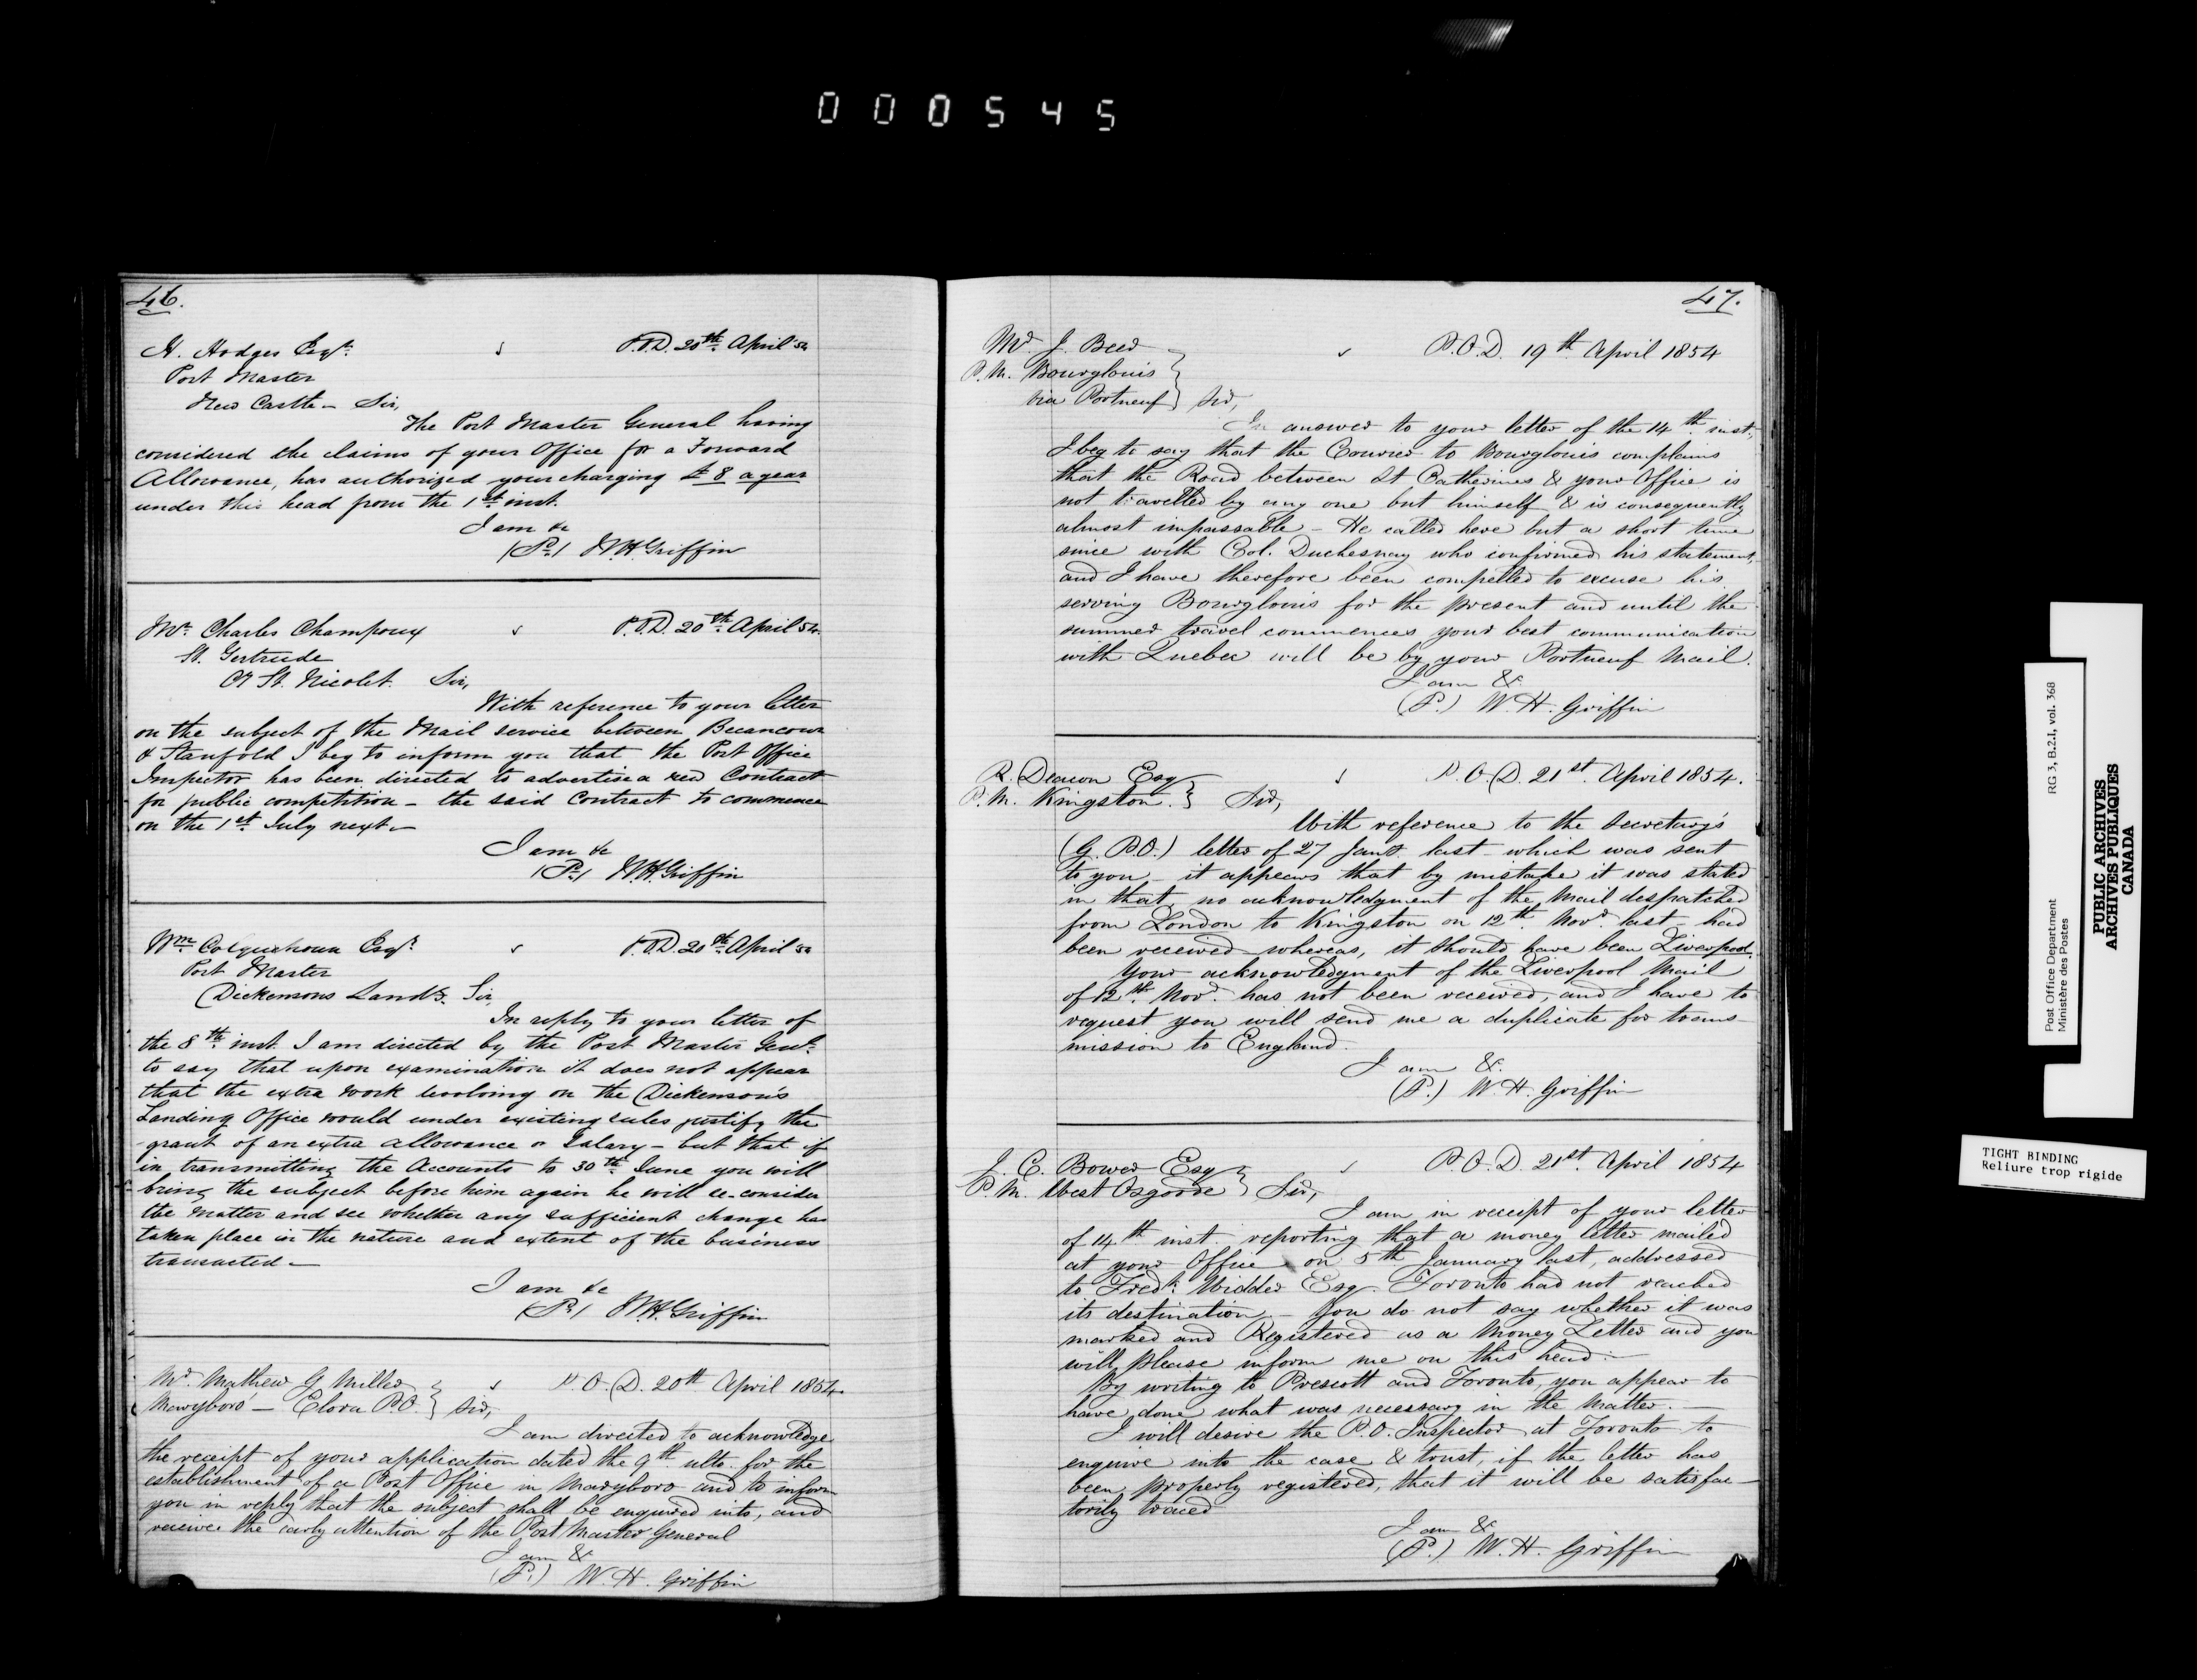 000545
46.
H. Hodges Esqr.
P.O.D. 20th April 54
Post Master
New Castle – Sir,
The Post Master General having
considered the claims of your Office for a Forward
Allowance, has authorized your charging £8 a year
under this head from the 1st inst.
I am &c
(P.) W.H. Griffin
Mr. Charles Champoux
P.O.D. 20th April 54.
St. Gertrude
St. Nicolet. Sir,
With reference to your letter
on the subject of the Mail service between Becancour
& Stanfold I beg to inform you that the Post Office
Inspector has been directed to advertise a new Contract
for public competition – the said Contract to commence
on the 1st July next –
I am &c
(P.) W.H. Griffin
Wm. Colquhoun Esqr.
P.O.D. 20th April 54
Post Master
Dickensons Landg. Sir,
In reply to your letter of
the 8th inst. I am directed by the Post Master Genl.
to say that upon examination it does not appear
that the extra work devolving on the Dickenson's
Landing Office would under existing rules justify the
grant of an extra allowance or Salary – but that if
in transmitting the Accounts to 30th June you will
bring the subject before him again he will re-consider
the matter and see whether any sufficient change has
taken place in the nature and extent of the business
transacted –
I am &c
(P.) W.H. Griffin
Mr. Mathew G Miller
P.O.D. 20th April 1854
Maryboro' – Elora P.O. } Sir,
I am directed to acknowledge
the receipt of your application dated the 9th ulto. for the
establishment of a Post Office in Maryboro and to inform
you in reply that the subject shall be enquired into, and
receive the early attention of the Post Master General
I am &c
(P.) W. H. Griffin
47.
Mr. J. Beed
P.O.D. 19th April 1854
P.M. Bourglouis
via Portneuf } Sir,
In answer to your letter of the 14th inst.,
I beg to say that the Courier to Bourglouis complains
that the Road between St Catherines & your Office is
not travelled by any one but himself & is consequently
almost impassable – He called here but a short time
since with Col. Duchesnay who confirmed his statement,
and I have therefore been compelled to excuse his
serving Bourglouis for the present and until the
summer travel commences your best communication
with Quebec will be by your Portneuf Mail.
I am &c
(P.) W. H. Griffin
R. Deacon Esq
P.O.D. 21st. April 1854.
P.M. Kingston. } Sir,
With reference to the Secretary's
(G.P.O.) letter of 27 Jany. last – which was sent
to you – it appears that by mistake it was stated
in that, no acknowledgment of the Mail despatched
from London to Kingston on 12th Novr. last had
been received whereas, it should have been Liverpool.
Your acknowledgment of the Liverpool Mail
of 12th Novr. has not been received, and I have to
request you will send me a duplicate for trans-
mission to England.
I am &c.
(P.) W. H. Griffin
J. C. Bower Esq
P.O.D. 21st. April 1854
P.M. West Osgoode } Sir,
I am in receipt of your letter
of 14th inst. reporting that a money letter mailed
at your Office on 5th January last, addressed
to Fredk. Widder Esq. Toronto had not reached
its destination – You do not say whether it was
marked and Registered as a Money Letter and you
will please inform me on this head. –
By writing to Prescott and Toronto, you appear to
have done what was necessary in the matter. –
I will desire the P.O. Inspector at Toronto to
enquire into the case & trust, if the letter has
been properly registered, that it will be satisfac-
torily traced
I am &c
(P.) W. H. Griffin
Post Office Department RG 3, B.2.I, vol. 368
Ministère des Postes
PUBLIC ARCHIVES
ARCHIVES PUBLIQUES
CANADA
TIGHT BINDING
Reliure trop rigide